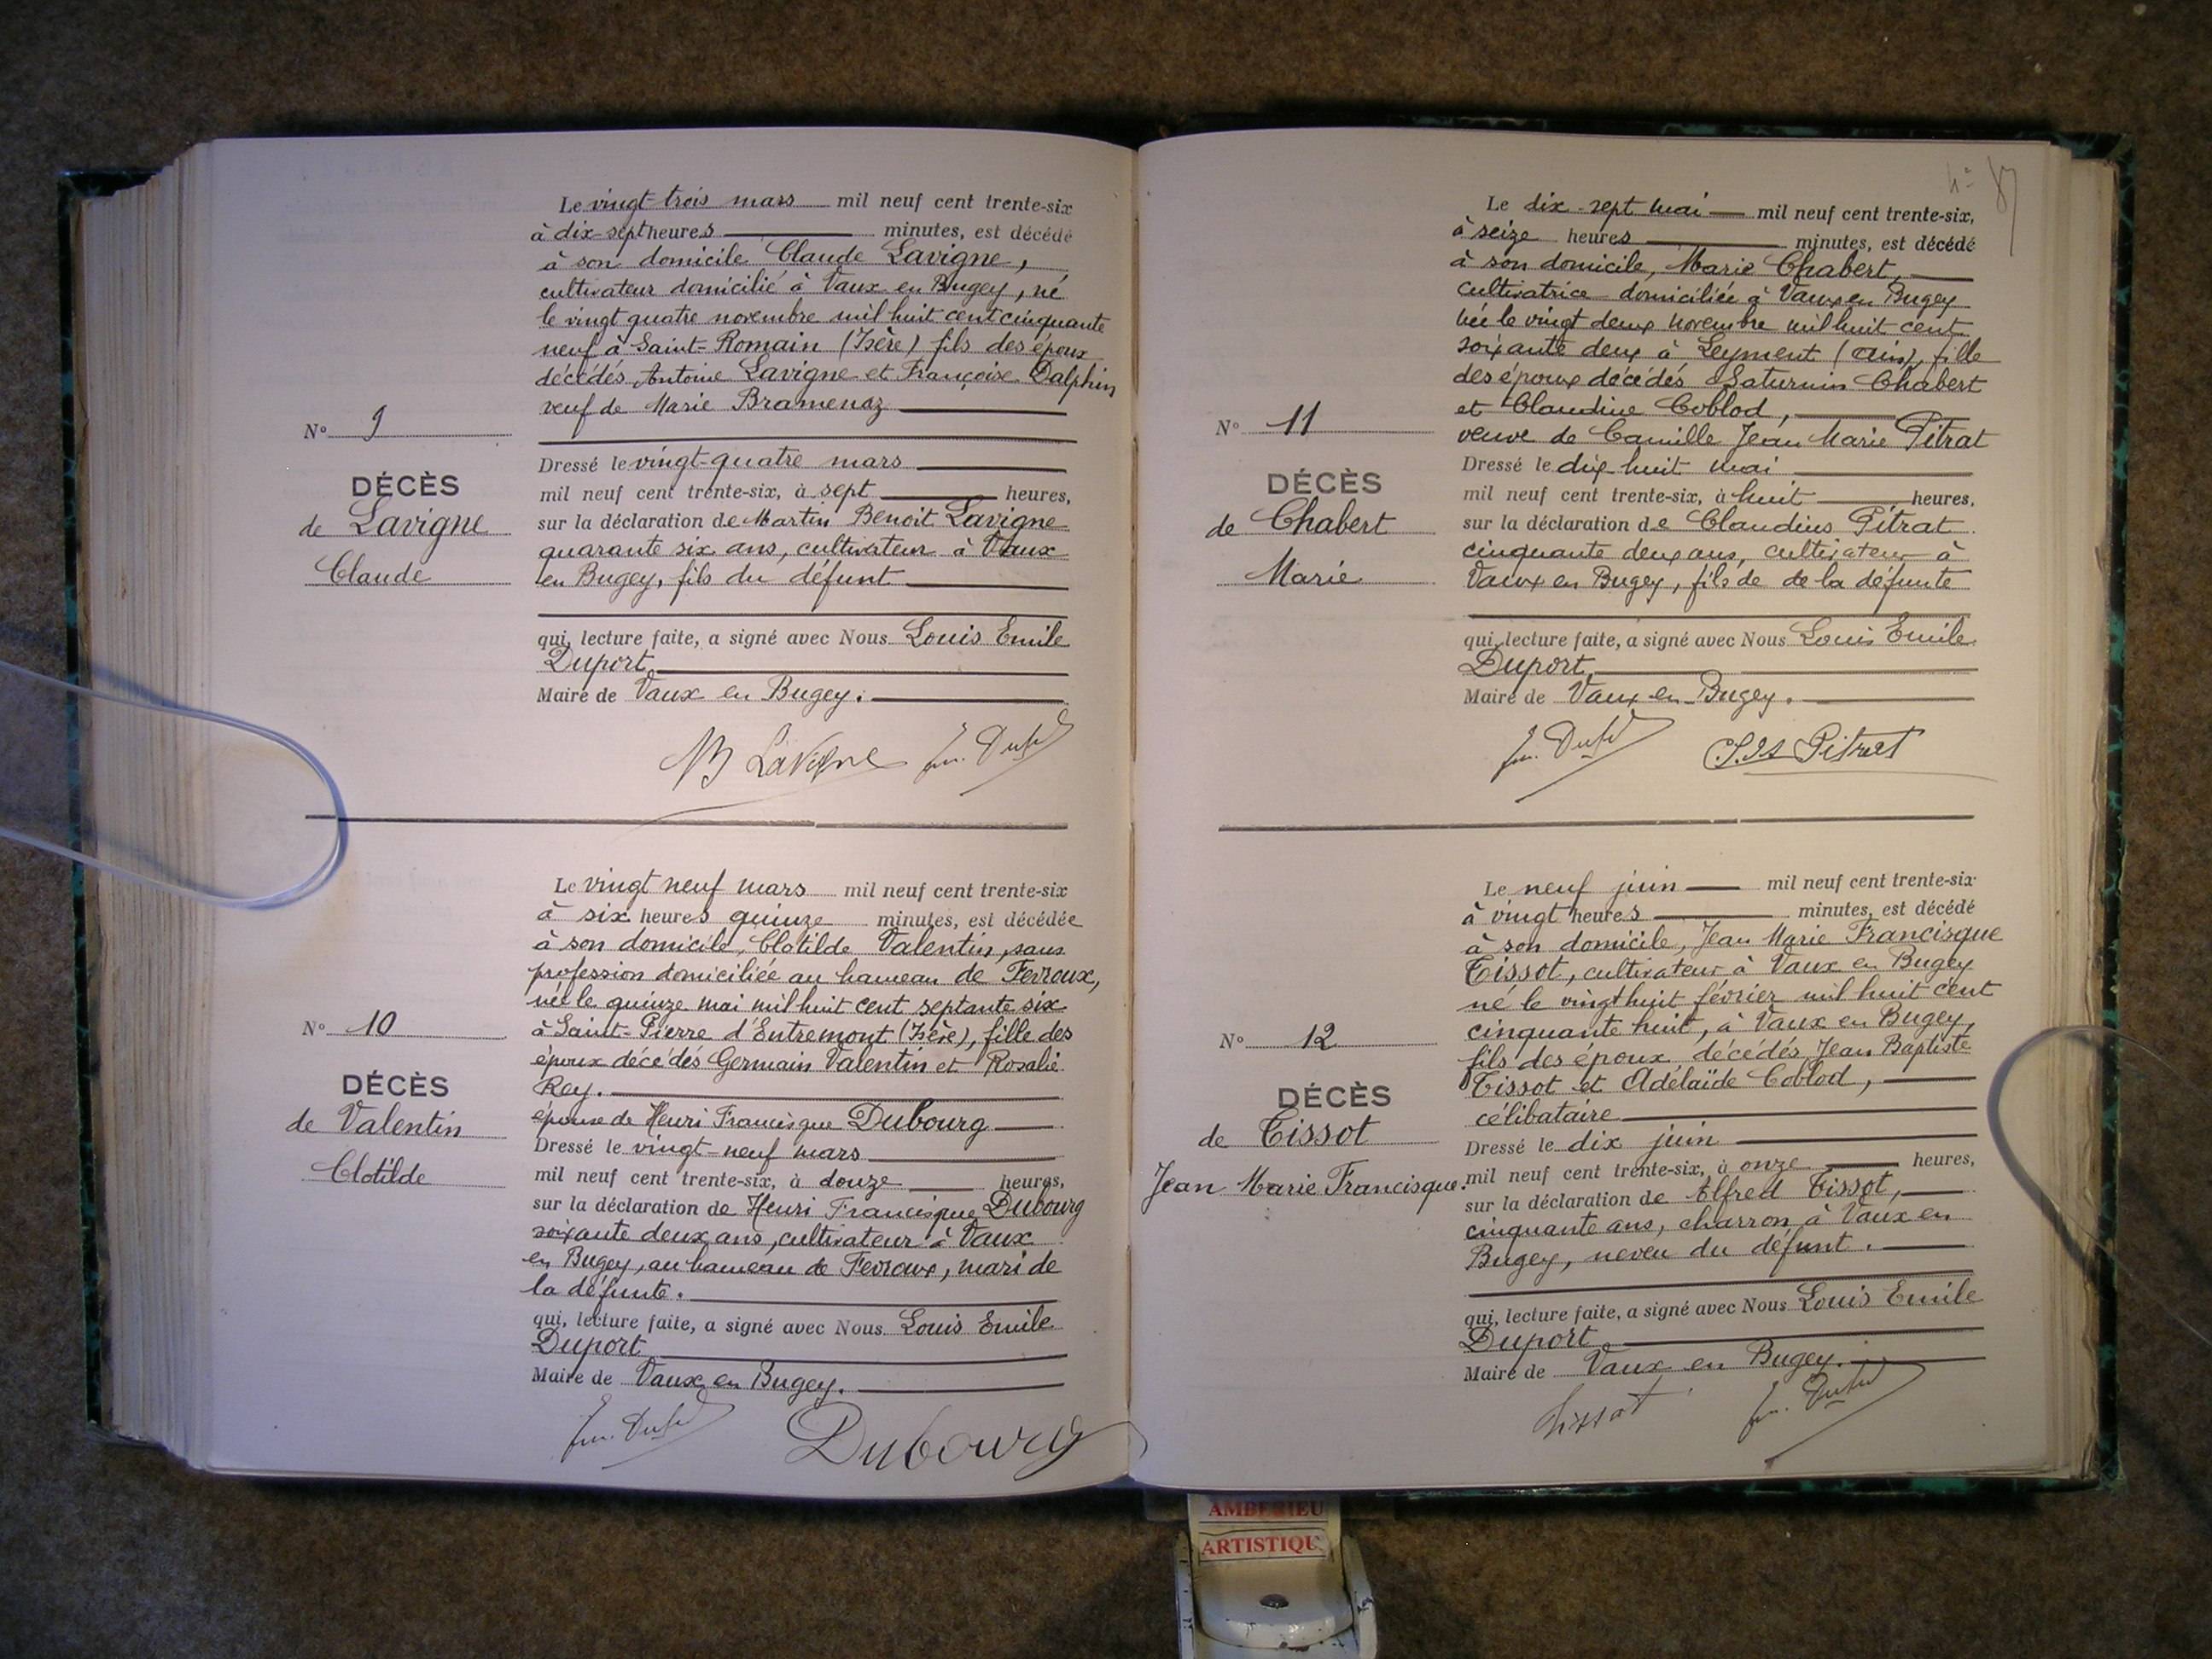 Le vingt-trois mars mil neuf cent trente-six
à dix-sept heures minutes, est décédé
à son domicile Claude Lavigne,
cultivateur domicilié à Vaux en Bugey, né
le vingt quatre novembre mil huit cent cinquante
neuf à Saint-Romain (Isère) fils des époux
décédés Antoine Lavigne et Françoise Dalphin
veuf de Marie Bramenaz
N° 9
DÉCÈS
de Lavigne
Claude
Dressé le vingt-quatre mars
mil neuf cent trente-six, à sept heures,
sur la déclaration de Martin Benoit Lavigne
quarante six ans, cultivateur à Vaux
en Bugey, fils du défunt
qui, lecture faite, a signé avec Nous Louis Emile
Duport
Maire de Vaux en Bugey.
MB Lavigne
Le vingt neuf mars mil neuf cent trente-six
à six heures quinze minutes, est décédée
à son domicile, Clotilde Valentin, sans
profession domiciliée au hameau de Fevroux,
née le quinze mai mil huit cent septante six
à Saint-Pierre d'Entremont (Isère), fille des
époux décédés Germain Valentin et Rosalie
Rey.
épouse de Henri Francisque Dubourg
N° 10
DÉCÈS
de Valentin
Clotilde
Dressé le vingt-neuf mars
mil neuf cent trente-six, à douze heures,
sur la déclaration de Henri Francisque Dubourg
soixante deux ans, cultivateur à Vaux
en Bugey, au hameau de Fevroux, mari de
la défunte.
qui, lecture faite, a signé avec Nous Louis Emile
Duport
Maire de Vaux en Bugey.
Dubourg
87
Le dix-sept mai mil neuf cent trente-six,
à seize heures minutes, est décédé
à son domicile, Marie Chabert,
cultivatrice domiciliée à Vaux en Bugey
née le vingt deux novembre mil huit cent
soixante deux à Leyment (Ain), fille
des époux décédés Saturnin Chabert
et Claudine Coblod,
veuve de Camille Jean Marie Pitrat
N° 11
DÉCÈS
de Chabert
Marie
Dressé le dix-huit mai
mil neuf cent trente-six, à huit heures,
sur la déclaration de Claudius Pitrat
cinquante deux ans, cultivateur à
Vaux en Bugey, fils de de la défunte
qui, lecture faite, a signé avec Nous Louis Emile
Duport
Maire de Vaux en Bugey.
Pitrat
Le neuf juin mil neuf cent trente-six
à vingt heures minutes, est décédé
à son domicile, Jean Marie Francisque
Tissot, cultivateur à Vaux en Bugey
né le vingt huit février mil huit cent
cinquante huit, à Vaux en Bugey,
fils des époux décédés Jean Baptiste
Tissot et Adélaïde Coblod,
célibataire
N° 12
DÉCÈS
de Tissot
Jean Marie Francisque.
Dressé le dix juin
mil neuf cent trente-six, à onze heures,
sur la déclaration de Alfred Tissot,
cinquante ans, charron à Vaux en
Bugey, neveu du défunt.
qui, lecture faite, a signé avec Nous Louis Emile
Duport
Maire de Vaux en Bugey.
Tissot
AMBERIEU
ARTISTIQU